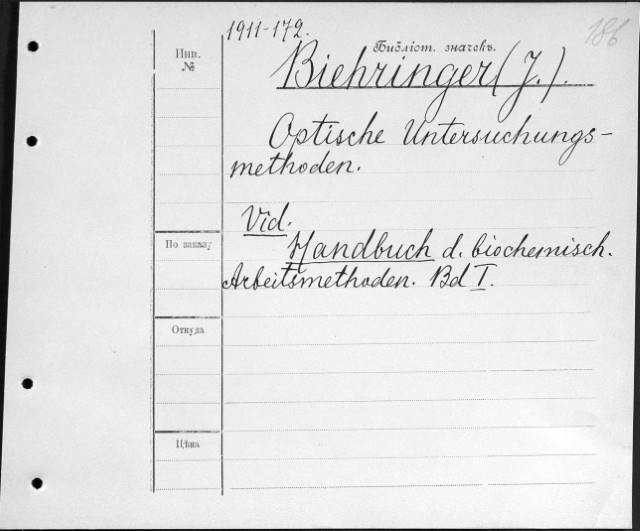 1911-172.
186
Инв.
№
Библіот. значекъ.
Biehringer (J.).
Optische Untersuchungs-
methoden.
Vid.
По заказу
Handbuch d. biochemisch.
Arbeitsmethoden. Bd I.
Откуда
Цѣна